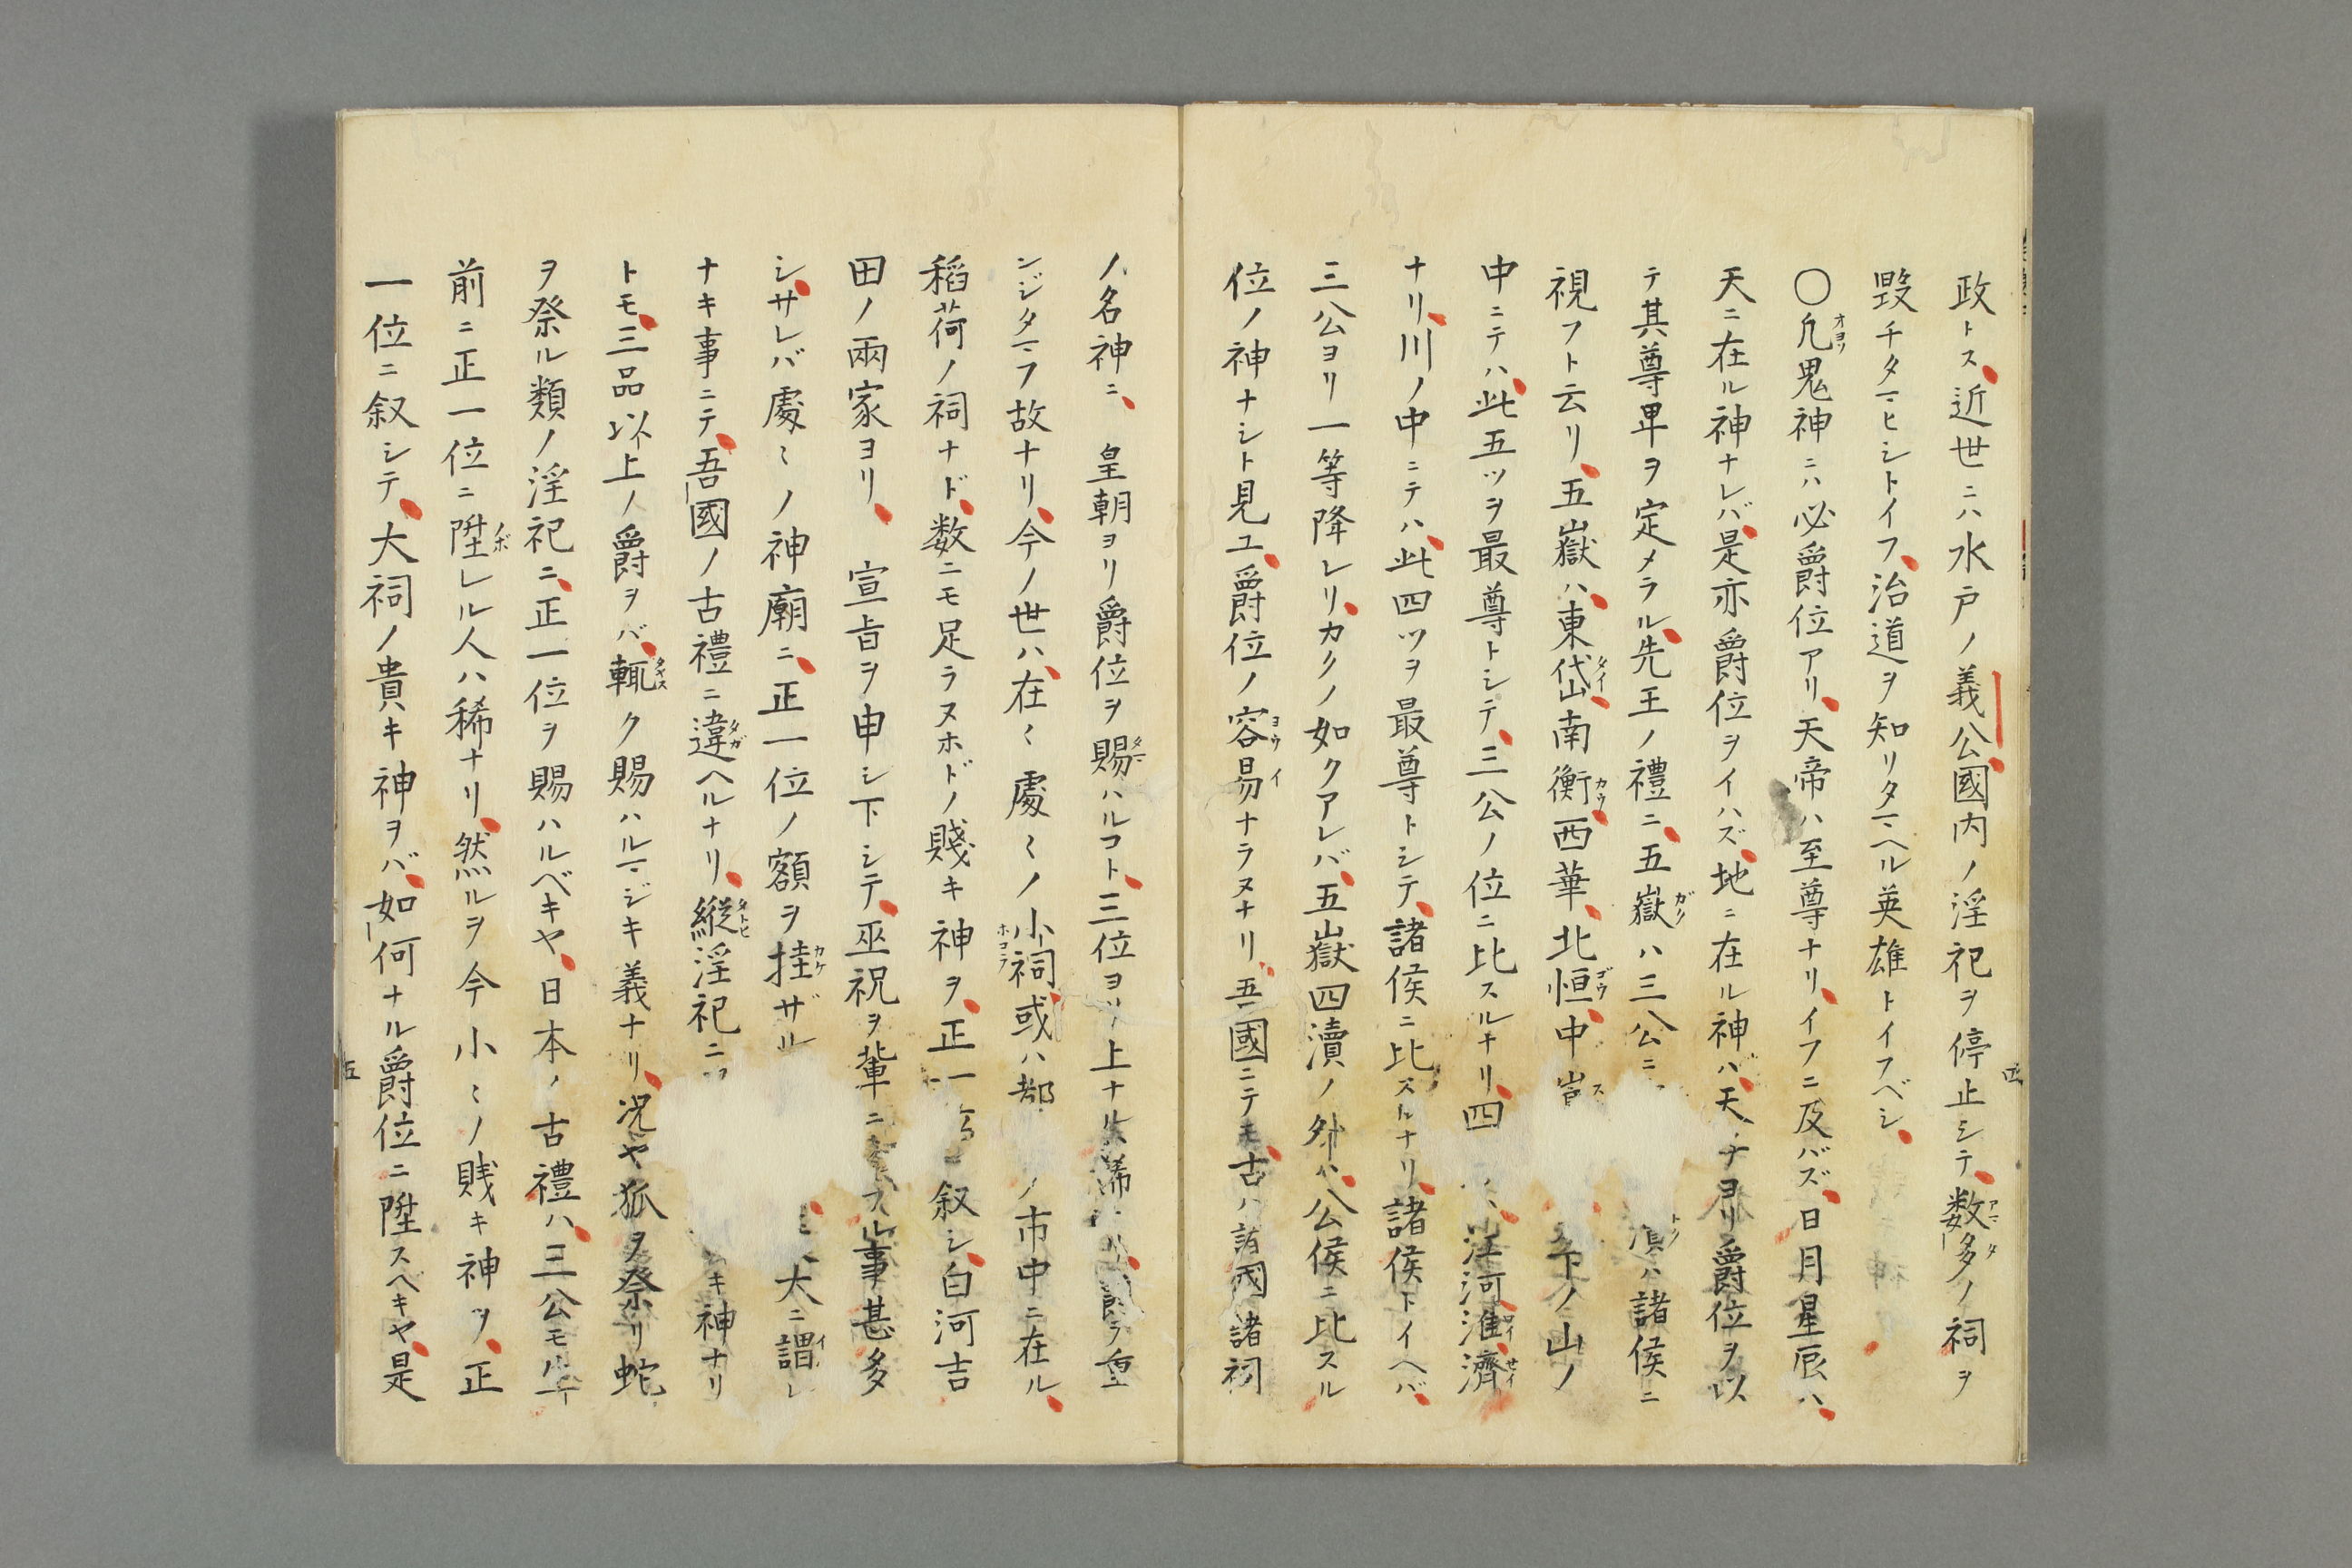 政トス近世ニハ水戸ノ義公國内ノ淫祀ヲ停止シテ数多ノ祠ヲ
毀チタマヒシトイフ治道ヲ知リタマヘル英雄トイフベシ
〇凢鬼神ニハ必爵位アリ天帝ハ至尊ナリイフニ及バズ日月星辰ハ
天ニ在ル神ナレバ是亦爵位ヲイハズ地ニ在ル神ハ天子ヨリ爵位ヲ以
テ其尊卑ヲ定メラル先王ノ禮ニ五嶽ハ三公ニ 瀆ハ諸侯ニ
視フト云リ五嶽ハ東岱南衡西華北恒中 下ノ山ノ
中ニテハ此五ツヲ最尊トシテ三公ノ位ニ比スルナリ四 江河淮濟
ナリ川ノ中ニテハ此四ツヲ最尊トシテ諸侯ニ比スルナリ諸侯トイヘバ
三公ヨリ一等降レリカクノ如クアレバ五嶽四瀆ノ外ハ公侯ニ比スル
位ノ神ナシト見ユ爵位ノ容易ナラヌナリ吾國ニテモ古ハ諸國諸祠
ノ名神ニ 皇朝ヨリ爵位ヲ賜ハルコト三位ヨリ上ナルハ稀ナリ爵ヲ重
ンジタマフ故ナリ今ノ世ハ在々處々ノ小祠或ハ都 ノ市中ニ在ル
稲荷ノ祠ナド数ニモ足ラヌホドノ賤キ神ヲ正一 叙シ白河吉
田ノ兩家ヨリ 宣旨ヲ申シ下シテ巫祝ヲ輩ニ フル事甚多
シサレバ處々ノ神廟ニ正一位ノ額ヲ挂ザル 大ニ謂レ
ナキ事ニテ吾國ノ古禮ニ違ヘルナリ縦淫祀ニ キ神ナリ
トモ三品以上ノ爵ヲバ輒ク賜ハルマジキ義ナリ况ヤ狐ヲ祭リ蛇
ヲ祭ル類ノ淫祀ニ正一位ヲ賜ハルベキヤ日本ノ古禮ハ三公モ生
前ニ正一位ニ陞レル人ハ稀ナリ然ルヲ今小々ノ賎キ神ヲ正
一位ニ叙シテ大祠ノ貴キ神ヲバ如何ナル爵位ニ陞スベキヤ是